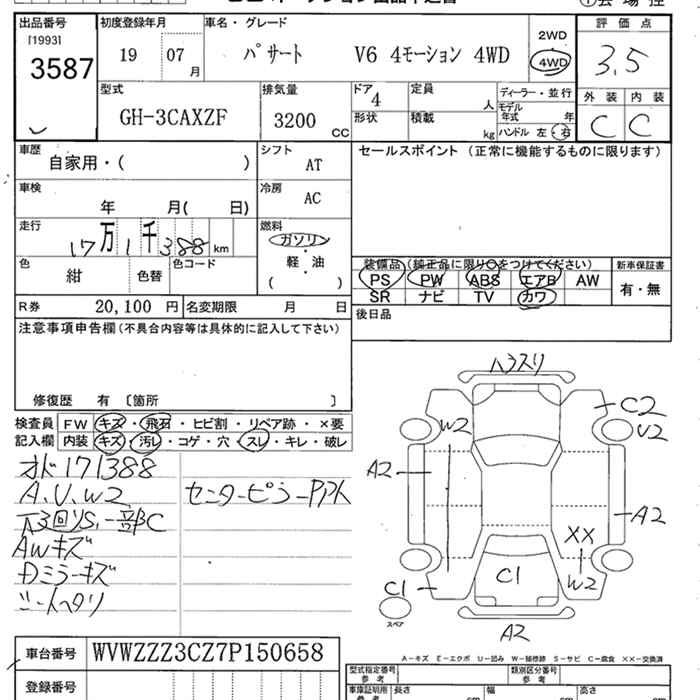 出品番号 初度登録年月 車名・グレード 評価点
[1993] 2WD
3587 19 07月 パサート V6 4モーション 4WD 4WD 3.5
型式 排気量 ドア 定員 ディーラー・並行 外装 内装
GH-3CAXZF 3200cc 4 人 モデル年式 年 C C
形状 積載 kg ハンドル 左・右
車歴 シフト セールスポイント（正常に機能するものに限ります）
自家用・（ ） AT
車検 冷房
年 月（ 日） AC
走行 燃料
17万1千388km ガソリン
軽・油
（ ）
色 色替 色コード 装備品（純正品に限り○をつけてください） 新車保証書
紺 PS PW ABS エアB AW 有・無
SR ナビ TV カワ
R券 20,100円 名変期限 月 日 後日品
注意事項申告欄（不具合内容等は具体的に記入して下さい）
修復歴 有 〔箇所 〕
検査員 FW キズ・飛石・ヒビ割・リペア跡・×要
記入欄 内装 キズ・汚レ・コゲ・穴・スレ・キレ・破レ
オド171388
A.U.W2 センターピラー
AWキズ
Dミラーキズ
シートヘタリ
ハラスリ
W2 C2
U2
A2 A2
XX
C1 C1 W2
スペア
A2
車台番号 WVWZZZ3CZ7P150658
A-キズ E-エクボ U-凹み W-補修跡 S-サビ C-腐食 XX-交換済
登録番号 型式指定番号 参考 類別区分番号 参考
車庫証明用 参考 長さ cm 幅 cm 高さ cm